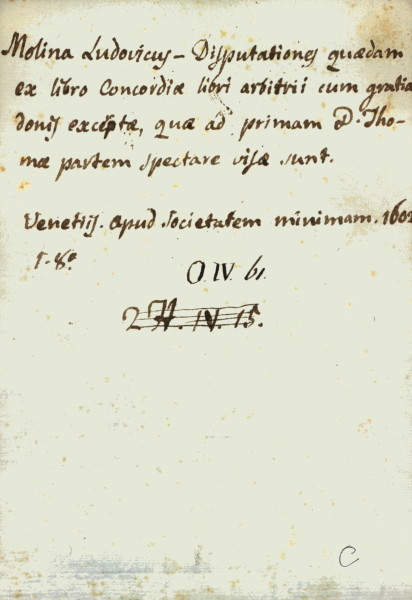 Molina Ludovicus – Disputationes quædam
ex libro Concordiæ liberi arbitrii cum gratia
donis exceptæ, quæ ad primam D. Tho-
mæ partem spectare visæ sunt.
Venetiis. apud societatem minimam. 1602
t. 8º
O. IV. 61.
2 H. IV. 15.
C